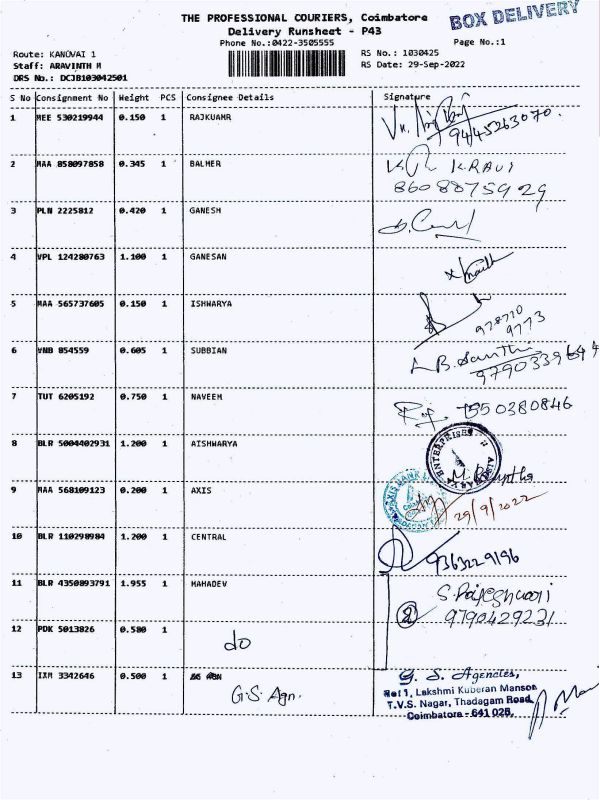 THE PROFESSIONAL COURIERS, Coimbatore
BOX DELIVERY
Delivery Runsheet - P43
Phone No.:0422-3505555
Page No.:1
Route: KANUVAI 1
RS No.: 1030425
Staff: ARAVINTH M
RS Date: 29-Sep-2022
DRS No.: DCJB103042501
S No Consignment No Weight PCS Consignee Details Signature
1 MEE 530219944 0.150 1 RAJKUAMR
9445263070.
2 MAA 858097858 0.345 1 BALMER K.RAVI
8608875929
3 PLN 2225812 0.420 1 GANESH
4 VPL 124280763 1.100 1 GANESAN
5 MAA 565737605 0.150 1 ISHWARYA
978770
9773
6 VNB 854559 0.605 1 SUBBIAN B.Santhi
9790339644
7 TUT 6205192 0.750 1 NAVEEM
550380846
8 BLR 5004402931 1.200 1 AISHWARYA
ENTERPRISES
9 MAA 568109123 0.200 1 AXIS
AXIS BANK
29/9/2022
10 BLR 110298984 1.200 1 CENTRAL
9363229196
11 BLR 4350893791 1.955 1 MAHADEV S.Rajeshwari
2 9790429231
12 PDK 5013826 0.580 1
do
13 IXM 3342646 0.500 1
G.S. Agn.
G. S. Agencies,
No: 1, Lakshmi Kuberan Manson
T.V.S. Nagar, Thadagam Road,
Coimbatore - 641 025.